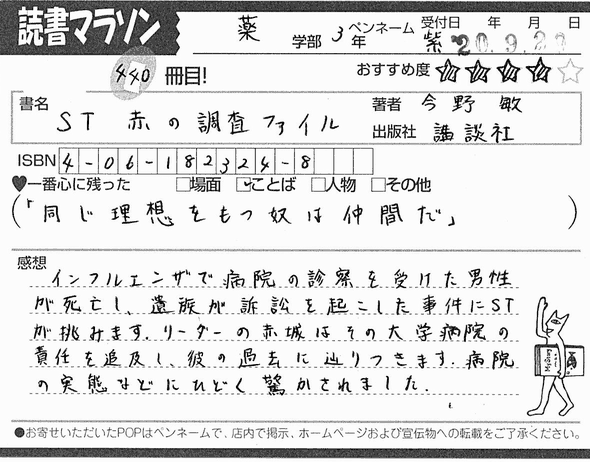 読書マラソン
薬 学部 3年 ペンネーム 紫 受付日 年 月 日
20.9.29
440 冊目!
おすすめ度 ★★★★☆
書名 ST 赤の調査ファイル
著者 今野 敏
出版社 講談社
ISBN 4-06-182324-8
♥一番心に残った □場面 ☑ことば □人物 □その他
(「同じ理想をもつ奴は仲間だ」)
感想
インフルエンザで病院の診察を受けた男性
が死亡し、遺族が訴訟を起こした事件にST
が挑みます.リーダーの赤城はその大学病院の
責任を追及し、彼の過去に辿りつきます.病院
の実態などにひどく驚かされました.
●お寄せいただいたPOPはペンネームで、店内で掲示、ホームページおよび宣伝物への転載をご了承ください。